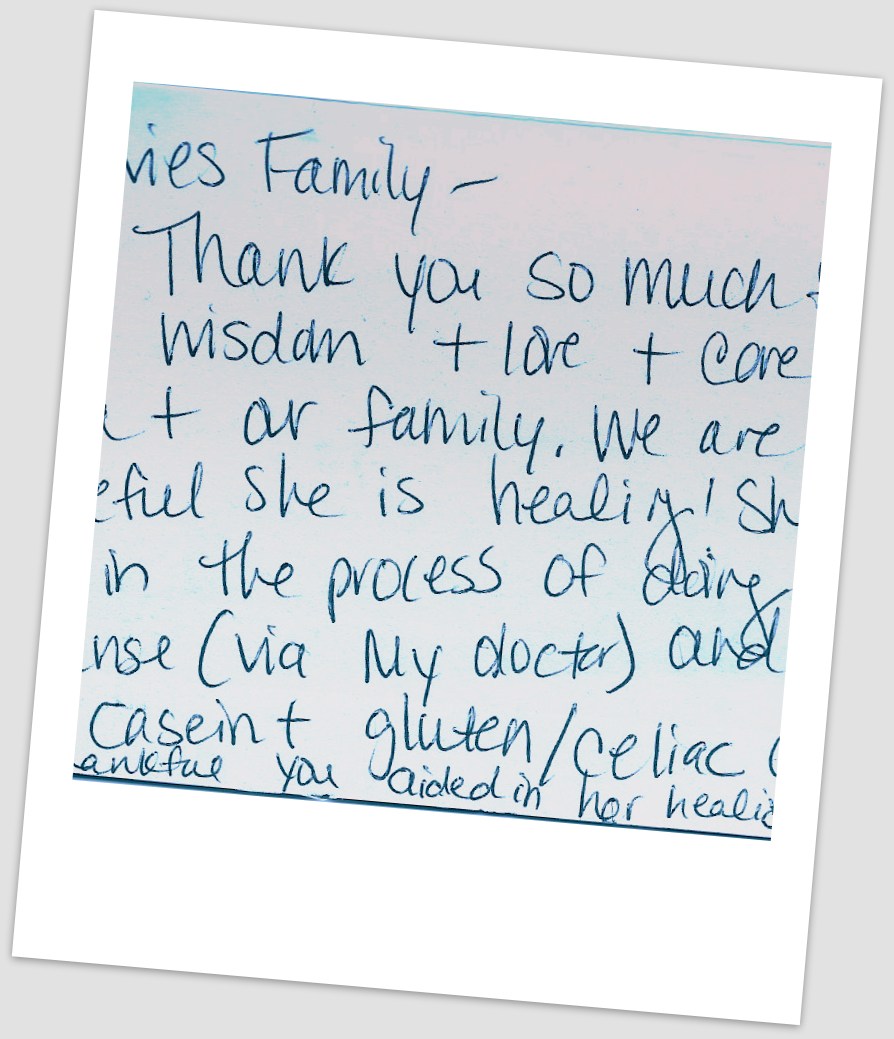 Family -
Thank you so much
wisdom + love + care
+ our family. We are
she is healing! Sh
in the process of doing
(via My doctor) and
casein + gluten/celiac (
you aided in her